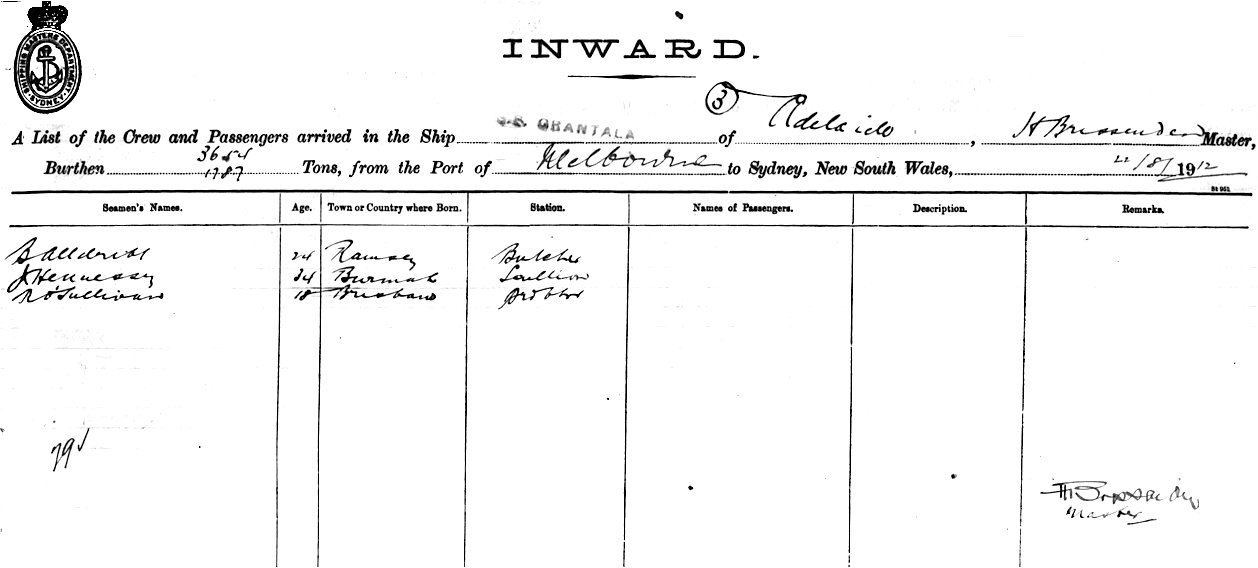 SHIPPING MASTERS DEPARTMENT SYDNEY
INWARD.
3
A List of the Crew and Passengers arrived in the Ship S.S. GRANTALA of Adelaide, H Brissenden Master,
Burthen 3654 1787 Tons, from the Port of Melbourne to Sydney, New South Wales, 22/8/1912
St 952
Seamen's Names. Age. Town or Country where Born. Station. Names of Passengers. Description. Remarks.
24 Ramsey Butcher
J Hennessy 34 Burmah Scullion
R O'Sullivan 18 Brisbane
79
H Brissenden
Master